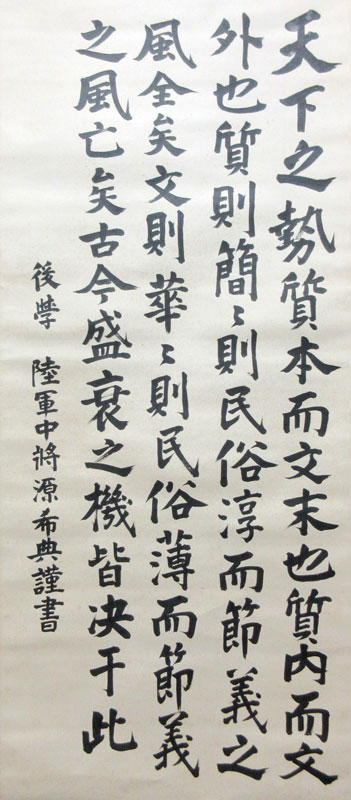 天下之勢質本而文末也質内而文
外也質則簡〻則民俗淳而節義之
風全矣文則華〻則民俗薄而節義
之風亡矣古今盛衰之機皆决于此
後學 陸軍中将源希典謹書